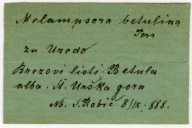 Melampsora betulina
Pers
zu Uredo
Brezovi listi Betula
alba. St. Urška gora
M. S. Robič 8/IX. 888.